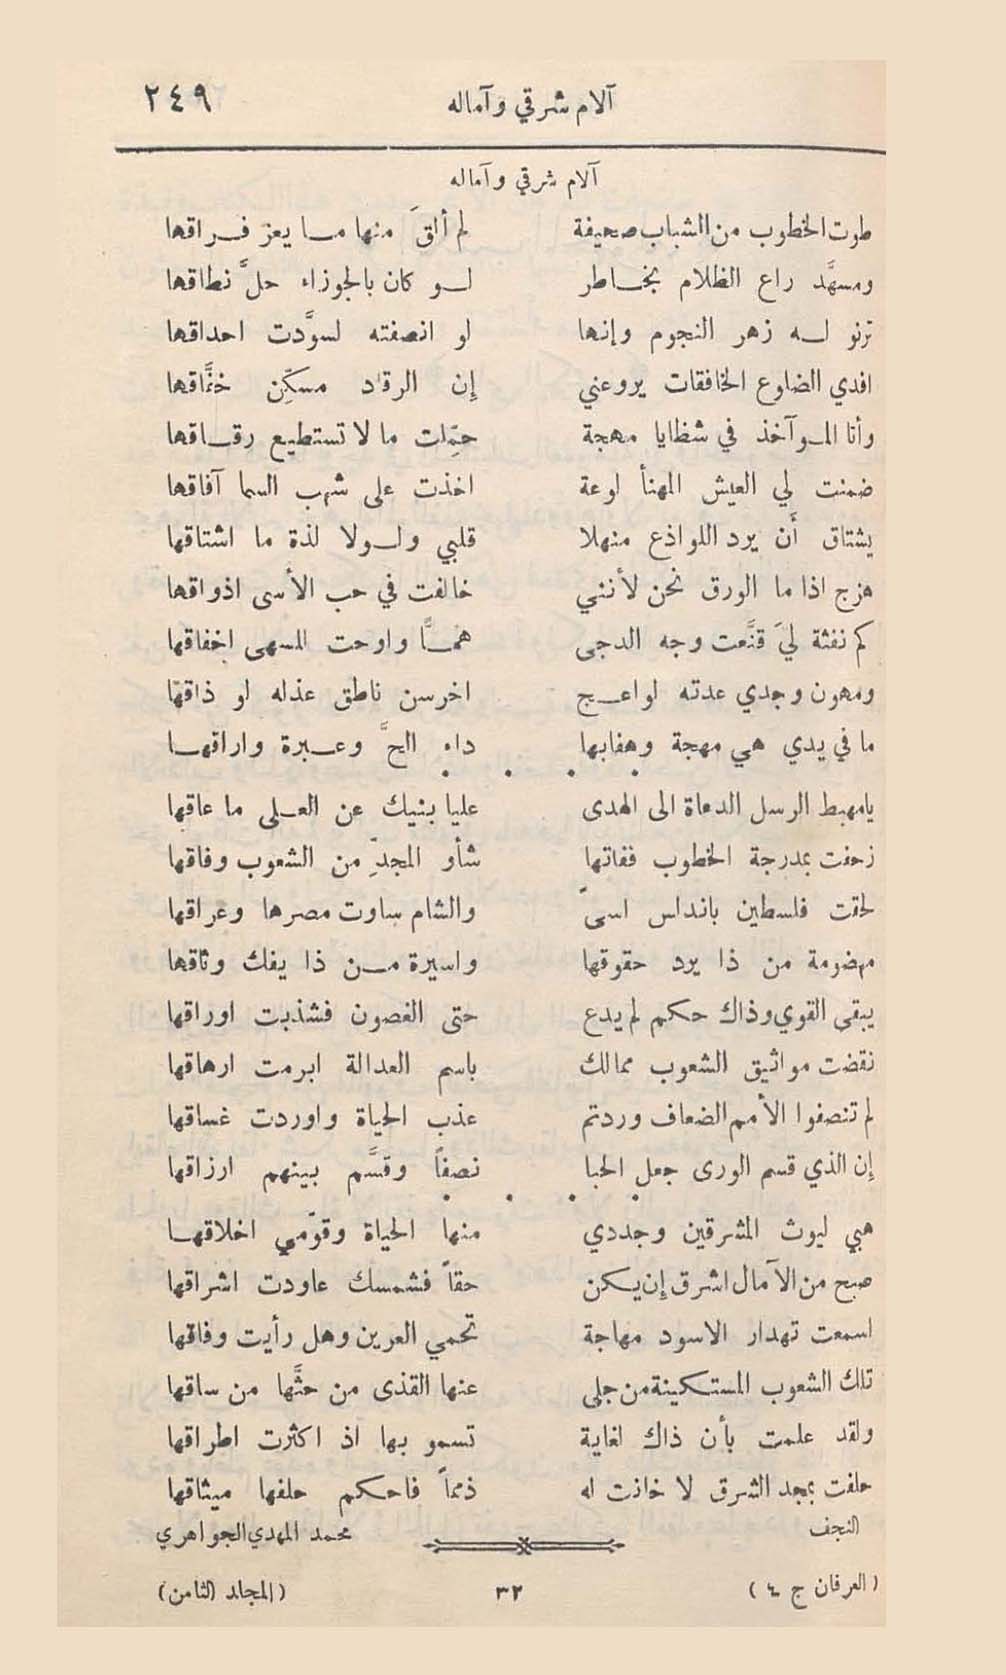 آلام شرقي وآماله ٢٤٩
آلام شرقي وآماله
طوت الخطوب من الشباب صحيفة لم ألقَ منها مـا يعز فـراقها
ومسهَّد راع الظلام بخـاطر لـو كان بالجوزاء حلَّ نطاقها
ترنو لـه زهر النجوم وإنها لو انصفته لسوَّدت احداقها
افدي الضلوع الخافقات يروعني إن الرقاد مسكِّن خفَّاقها
وأنا المـوآخذ في شظايا مهجة حمِّلت ما لا تستطيع رقـاقها
ضمنت لي العيش المهنأ لوعة اخذت على شهب السما آفاقها
يشتاق أن يرد اللواذع منهلا قلبي ولـولا لذة ما اشتاقها
هزج اذا ما الورق نحن لأنني خالفت في حب الأسى اذواقها
كم نفثة ليَ قنَّعت وجه الدجى همـاًّ واوحت للسهى اخفاقها
ومهون وجدي عدته لواعـج اخرسن ناطق عذله لو ذاقها
ما في يدي هي مهجة وهفابها داء الحَّ وعـبرة واراقهـا
يامهبط الرسل الدعاة الى الهدى عليا بنيك عن العـلى ما عاقها
زحفت بمدرجة الخطوب ففاتها شأو المجدِّ من الشعوب وفاقها
لحقت فلسطين باندلس اسىً والشام ساوت مصرها وعراقها
مهضومة من ذا يرد حقوقها واسيرة مـن ذا يفك وثاقها
يبقى القوي وذاك حكم لم يدع حتى الغصون فشذبت اوراقها
نقضت مواثيق الشعوب ممالك باسم العدالة ابرمت ارهاقها
لم تنصفوا الأمم الضعاف وردتم عذب الحياة واوردت غساقها
إن الذي قسم الورى جعل الحبا نصفاً وقسَّم بينهم ارزاقها
هبي ليوث المشرقين وجددي منها الحياة وقوّمي اخلاقهـا
صبح من الآمال اشرق إن يـكن حقاً فشمسك عاودت اشراقها
اسمعت تهدار الاسود مهاجة تحمي العرين وهل رأيت وفاقها
تلك الشعوب المستـكينة من جلى عنها القذى من حثَّها من ساقها
ولقد علمت بأن ذاك لغاية تسمو بها اذ اكثرت اطراقها
حلفت بمجد الشرق لا خانت له ذمماً فاحكم حلفها ميثاقها
النجف محمد المهدي الجواهري
(العرفان ج ٤) ٣٢ (المجلد الثامن)